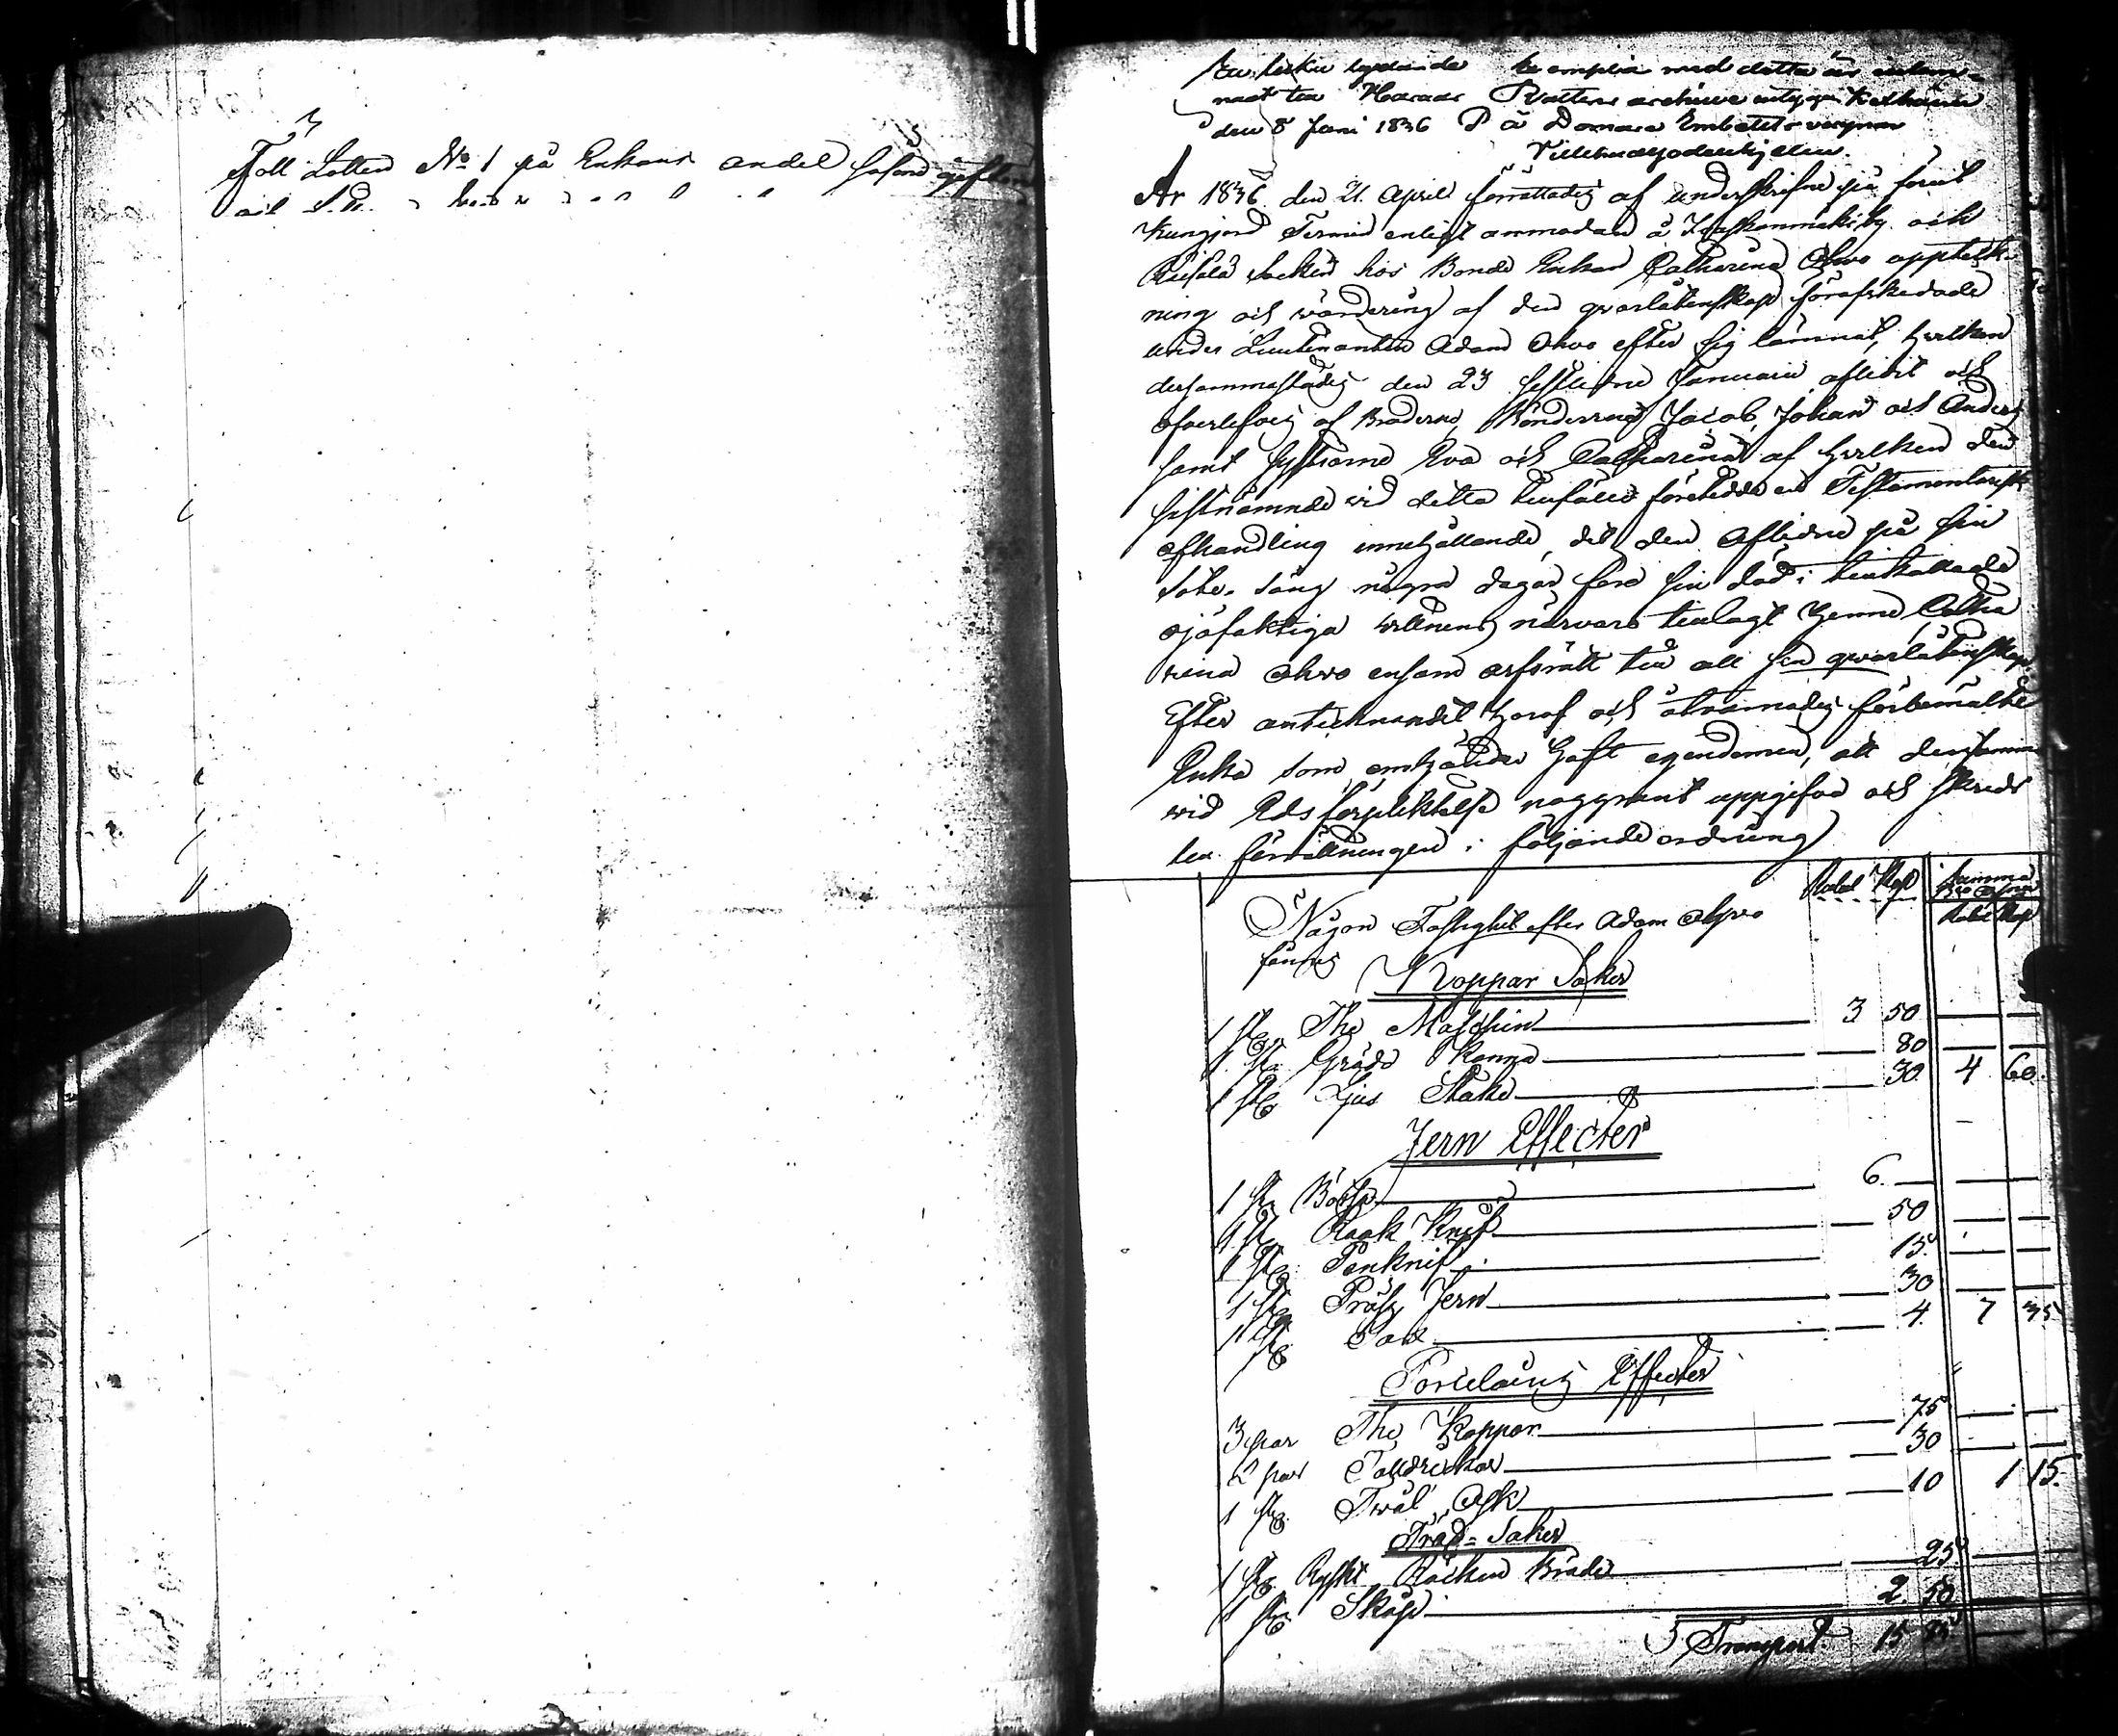 Föll Lotten No 1 på Enkans andel
En lika lydande exemplar med detta är inlem-
nadt till Härads Rättens archive
den 8 Juni 1836 På Domare Embetets vägnar
År 1836 den 21 April förrättades af underskrifne på förut
Kungjord Termin enligt anmodan å by och
Socken hos Bonde Enkan Catharina Ohvo uppteck-
ning och värdering af den qvarlåtenskap förafskedade
under Lieutenanten Adam Ohvo efter sig lämnat, hvilken
dersammastädes den 23 sistledne Januarii aflidit och
öfverlefves af Bröderne, Bönderne Jacob, Johan och Anders
samt Systrarne Eva och Catharina af hvilken den
sistnämnde vid detta tillfälle företedde en Testamentarisk
afhandling innehållande, det den Aflidne på sin
sote-säng några dagar före sin död i tillkallade
ojäfaktiga vittnens närvaro tillagt henne Catha
rina Ohvo ensam arfsrätt till all sin qvarlåtenskap.
Efter antecknandet häraf och åtvarnades förbemälte
Enka som omhänder haft egendomen, att densamma
vid Eds förpliktelse noggrant uppgifva och skreds
till förrättningen i följande ordning
Rubel Kop Summa
Rubel Kop
Någon Fastighet efter Adam Ohvo
fanns
Koppar Saker
1 st. The Maschin 3 50
1 st. Grädd Kanna 80
1 st. Ljus Stake 30 4 60.
Jern Effecter
1 st. Bössa 6.
1 st. Raak Knif 50
1 st. Penknif 15
1 st. Präss Jern 30
1 st. 4 7 35
Porcelains Effecter
3 par The Koppar 75
2 par Talldrickar 30
1 st. Tvål Ask 10 1 15.
Träd-Saker
1 st. Ryskt Räkne Bräde 25
1 st. Skåp 2 50
Transport 15 85